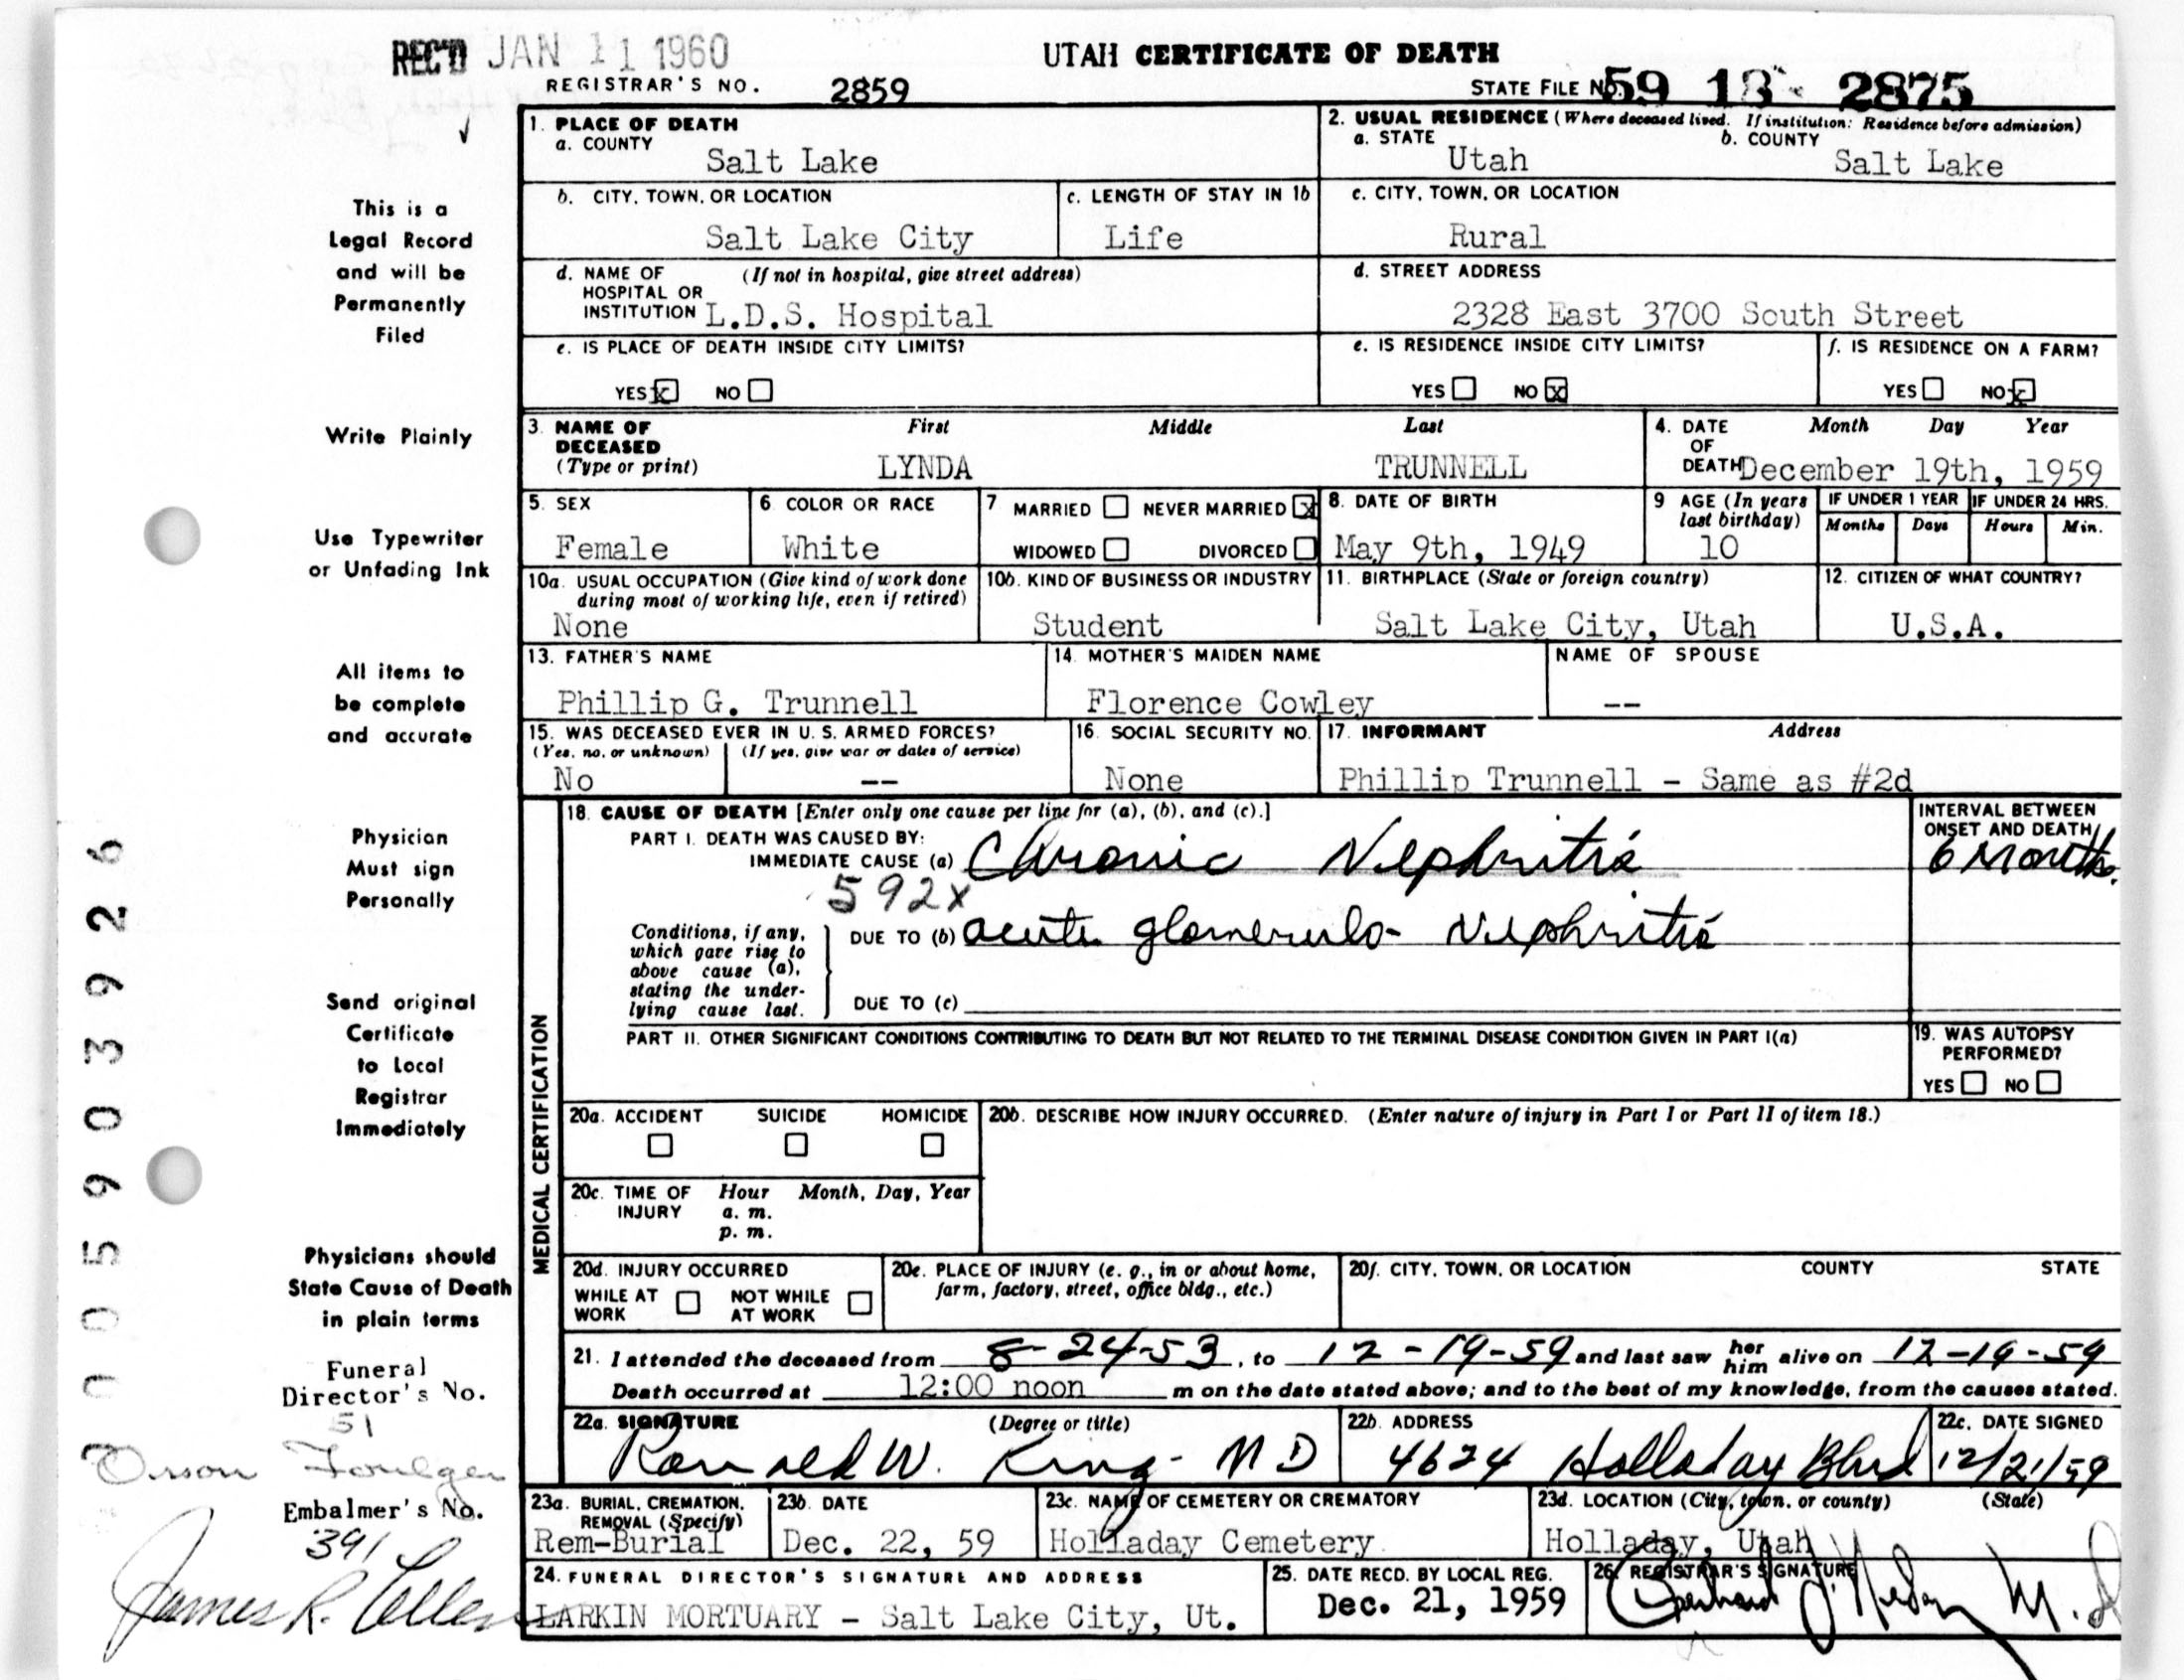 REC'D JAN 11 1960
UTAH CERTIFICATE OF DEATH
REGISTRAR'S NO. 2859
STATE FILE NO. 59 18 2875
1. PLACE OF DEATH
a. COUNTY
Salt Lake
2. USUAL RESIDENCE (Where deceased lived. If institution: Residence before admission)
a. STATE b. COUNTY
Utah Salt Lake
b. CITY, TOWN, OR LOCATION
Salt Lake City
c. LENGTH OF STAY IN 1b
Life
c. CITY, TOWN, OR LOCATION
Rural
d. NAME OF (If not in hospital, give street address)
HOSPITAL OR
INSTITUTION L.D.S. Hospital
d. STREET ADDRESS
2328 East 3700 South Street
e. IS PLACE OF DEATH INSIDE CITY LIMITS?
YES x NO
e. IS RESIDENCE INSIDE CITY LIMITS?
YES NO x
f. IS RESIDENCE ON A FARM?
YES NO x
3. NAME OF DECEASED (Type or print)
First Middle Last
LYNDA TRUNNELL
4. DATE OF DEATH Month Day Year
December 19th, 1959
5. SEX
Female
6 COLOR OR RACE
White
7 MARRIED NEVER MARRIED x
WIDOWED DIVORCED
8. DATE OF BIRTH
May 9th, 1949
9 AGE (In years last birthday)
10
IF UNDER 1 YEAR IF UNDER 24 HRS.
Months Days Hours Min.
10a. USUAL OCCUPATION (Give kind of work done
during most of working life, even if retired)
None
10b. KIND OF BUSINESS OR INDUSTRY
Student
11. BIRTHPLACE (State or foreign country)
Salt Lake City, Utah
12. CITIZEN OF WHAT COUNTRY?
U.S.A.
13. FATHER'S NAME
Phillip G. Trunnell
14. MOTHER'S MAIDEN NAME
Florence Cowley
NAME OF SPOUSE
--
15. WAS DECEASED EVER IN U. S. ARMED FORCES?
(Yes, no, or unknown) (If yes, give war or dates of service)
No --
16. SOCIAL SECURITY NO.
None
17. INFORMANT Address
Phillip Trunnell - Same as #2d
MEDICAL CERTIFICATION
18. CAUSE OF DEATH [Enter only one cause per line for (a), (b), and (c).]
PART I. DEATH WAS CAUSED BY:
IMMEDIATE CAUSE (a) Chronic Nephritis
592x
INTERVAL BETWEEN
ONSET AND DEATH
6 Months.
Conditions, if any,
which gave rise to
above cause (a),
stating the under-
lying cause last.
DUE TO (b) acute glomerulo- Nephritis
DUE TO (c)
PART II. OTHER SIGNIFICANT CONDITIONS CONTRIBUTING TO DEATH BUT NOT RELATED TO THE TERMINAL DISEASE CONDITION GIVEN IN PART I(a)
19. WAS AUTOPSY
PERFORMED?
YES NO
20a. ACCIDENT SUICIDE HOMICIDE
20b. DESCRIBE HOW INJURY OCCURRED. (Enter nature of injury in Part I or Part II of item 18.)
20c. TIME OF INJURY Hour Month, Day, Year
a. m.
p. m.
20d. INJURY OCCURRED
WHILE AT WORK NOT WHILE AT WORK
20e. PLACE OF INJURY (e. g., in or about home,
farm, factory, street, office bldg., etc.)
20f. CITY, TOWN, OR LOCATION COUNTY STATE
21. I attended the deceased from 8-24-53, to 12-19-59 and last saw her him alive on 12-19-59
Death occurred at 12:00 noon m on the date stated above; and to the best of my knowledge, from the causes stated.
22a. SIGNATURE (Degree or title)
Ronald W. King - MD
22b. ADDRESS
4624 Holladay Blvd
22c. DATE SIGNED
12/21/59
23a. BURIAL, CREMATION,
REMOVAL (Specify)
Rem-Burial
23b. DATE
Dec. 22, 59
23c. NAME OF CEMETERY OR CREMATORY
Holladay Cemetery
23d. LOCATION (City, town, or county) (State)
Holladay, Utah
24. FUNERAL DIRECTOR'S SIGNATURE AND ADDRESS
LARKIN MORTUARY - Salt Lake City, Ut.
25. DATE RECD. BY LOCAL REG.
Dec. 21, 1959
26. REGISTRAR'S SIGNATURE
M.D
This is a
Legal Record
and will be
Permanently
Filed
Write Plainly
Use Typewriter
or Unfading Ink
All items to
be complete
and accurate
Physician
Must sign
Personally
Send original
Certificate
to Local
Registrar
Immediately
Physicians should
State Cause of Death
in plain terms
Funeral
Director's No.
51
Orson Foulger
Embalmer's No.
391
James R. Cullen
3005903926